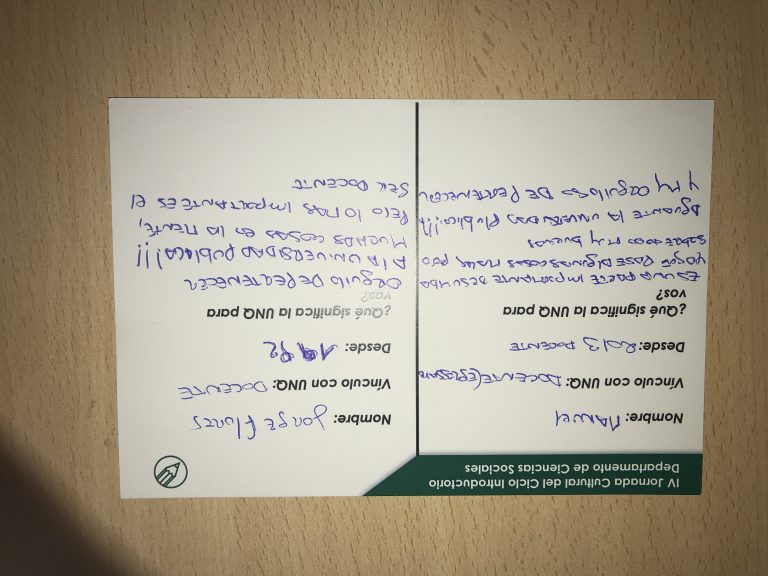 IV Jornada Cultural del Ciclo Introductorio
Departamento de Ciencias Sociales
Nombre: MANUEL
Vínculo con UNQ: DOCENTE
Desde: 2013 DOCENTE
¿Qué significa la UNQ para
vos?
ES UNA PARTE IMPORTANTE DE
PASE ALGUNAS COSAS MALAS, PERO
SOBRE TODO MUY BUENAS
AGUANTE LA UNIVERSIDAD Publica!!!
Y MUY ORGULLOSO DE PERTENECER
Nombre: JORGE FLORES
Vínculo con UNQ: DOCENTE
Desde: 1992
¿Qué significa la UNQ para
vos?
ORGULLO DE PERTENECER
A LA UNIVERSIDAD PUBLICA!!!
MUCHAS COSAS EN LA MENTE,
PERO LO MAS IMPORTANTE ES EL
SER DOCENTE